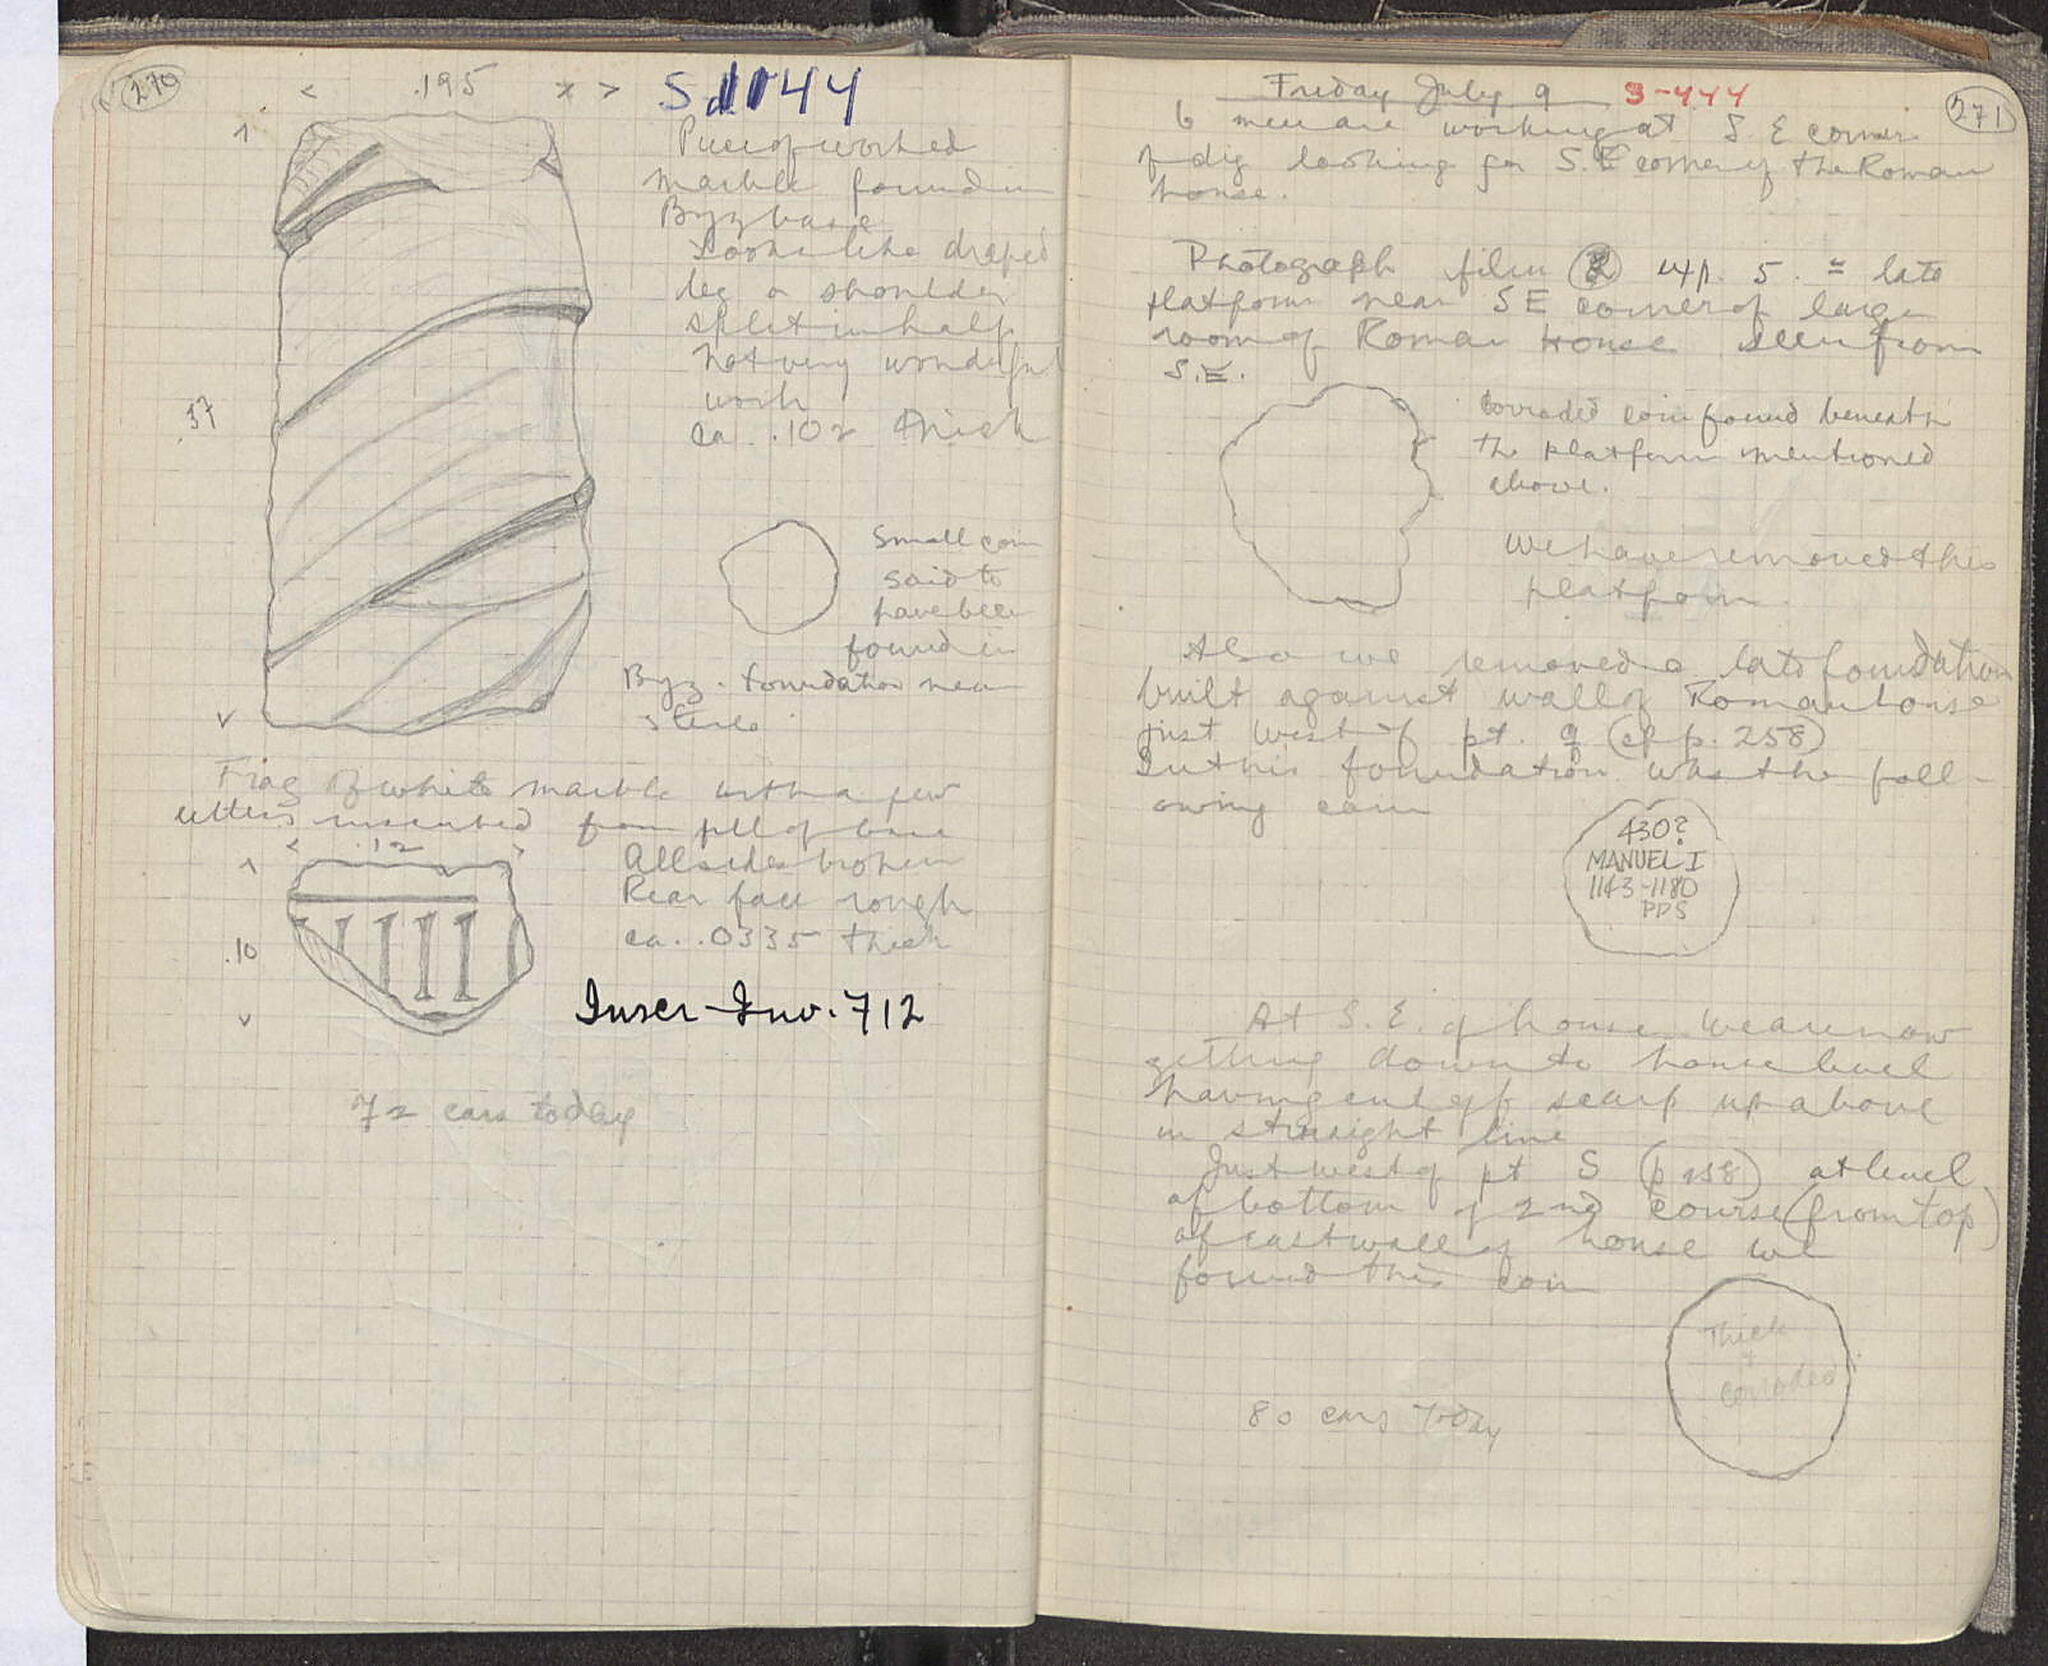 270
.195
S 1044
Piece of worked
marble found in
Byz base
Looks like draped
leg or shoulder
split in half
not very wonderful
work
ca. .102 thick
.37
Small coin
said to
have been
found in
Byz. foundation near
Frag of white marble with a few
letters inscribed from fill of base
.12
All sides broken
Rear face rough
ca. .0335 thick
.10
Inscr-Inv. 712
72 cars today
Friday July 9 S-444
271
6 men are working at S. E corner
of dig looking for S.E corner of the Roman
house.
Photograph film 2 exp. 5. = late
platform near SE corner of large
room of Roman House seen from
S.E.
Corroded coin found beneath
the platform mentioned
above.
We have removed this
platform.
Also we removed a late foundation
built against wall of Roman house
just west of pt. q (cf p. 258)
In this foundation was the foll-
owing coin
430?
MANUEL I
1143-1180
PDS
At S. E. of house we are now
getting down to house level
having cut off scarp up above
in straight line
Just west of pt S (p 258) at level
of bottom of 2nd course (from top)
of east wall of house we
found this coin
Thick
+
corroded
80 cars today